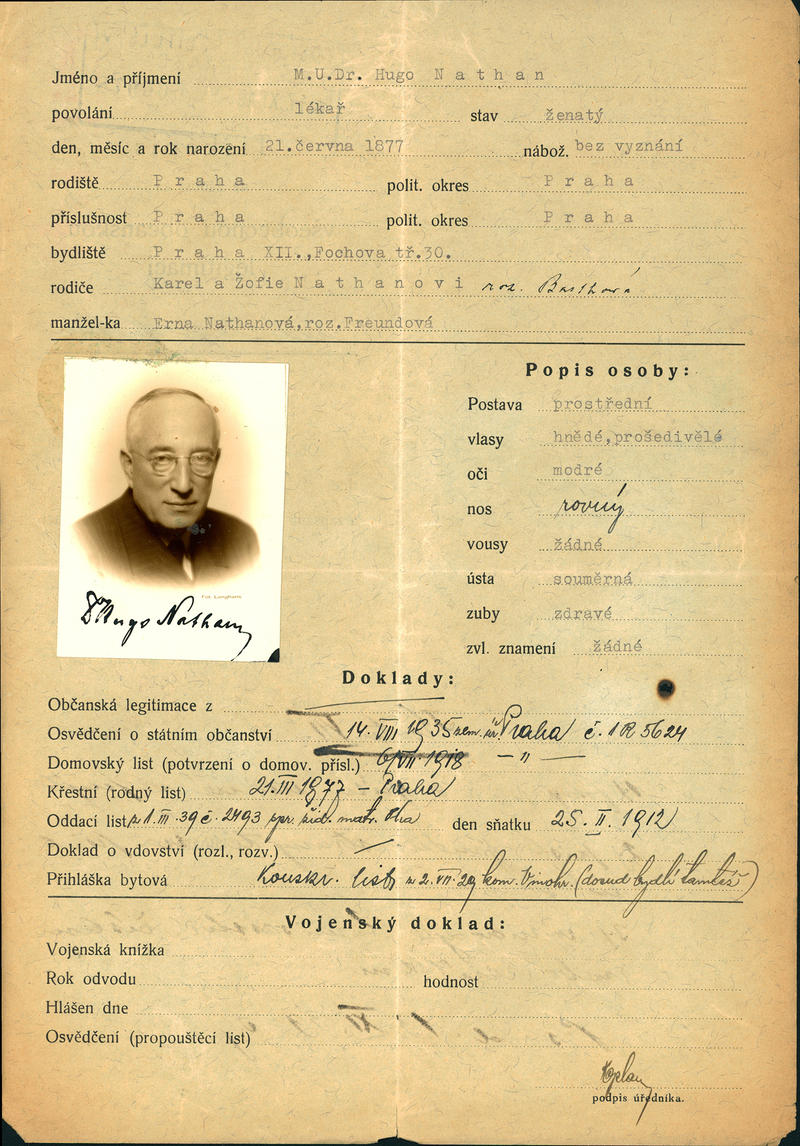 Jméno a příjmení M.U.Dr. Hugo Nathan
povolání lékař stav ženatý
den, měsíc a rok narození 21.června 1877 nábož. bez vyznání
rodiště Praha polit. okres Praha
příslušnost Praha polit. okres Praha
bydliště Praha XII.,Fochova tř.30.
rodiče Karel a Žofie Nathanovi roz. Basthová
manžel-ka Erna Nathanová,roz.Freundová
Popis osoby:
Postava prostřední
vlasy hnědé,prošedivělé
oči modré
nos rovný
vousy žádné
ústa souměrná
zuby zdravé
zvl. znamení žádné
Fot. Langhans
Dr Hugo Nathan
Doklady:
Občanská legitimace z
Osvědčení o státním občanství 14. VIII 1935 zem. úř. Praha č. 1 R 5624
Domovský list (potvrzení o domov. přísl.) 6/VII 1918 — " —
Křestní (rodný list) 21. III 1977 – Praha
Oddací list z 1. III. 39 č. 2493 žid. matr. Pha den sňatku 25. II. 1912
Doklad o vdovství (rozl., rozv.) —
Přihláška bytová list z 2. VII. 29 kom. Vinohr. (dosud bydlí tamtéž)
Vojenský doklad:
Vojenská knížka
Rok odvodu hodnost
Hlášen dne
Osvědčení (propouštěcí list)
podpis úředníka.